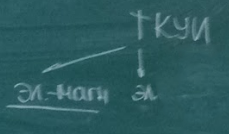 ТКУИ
эл.-магн эл